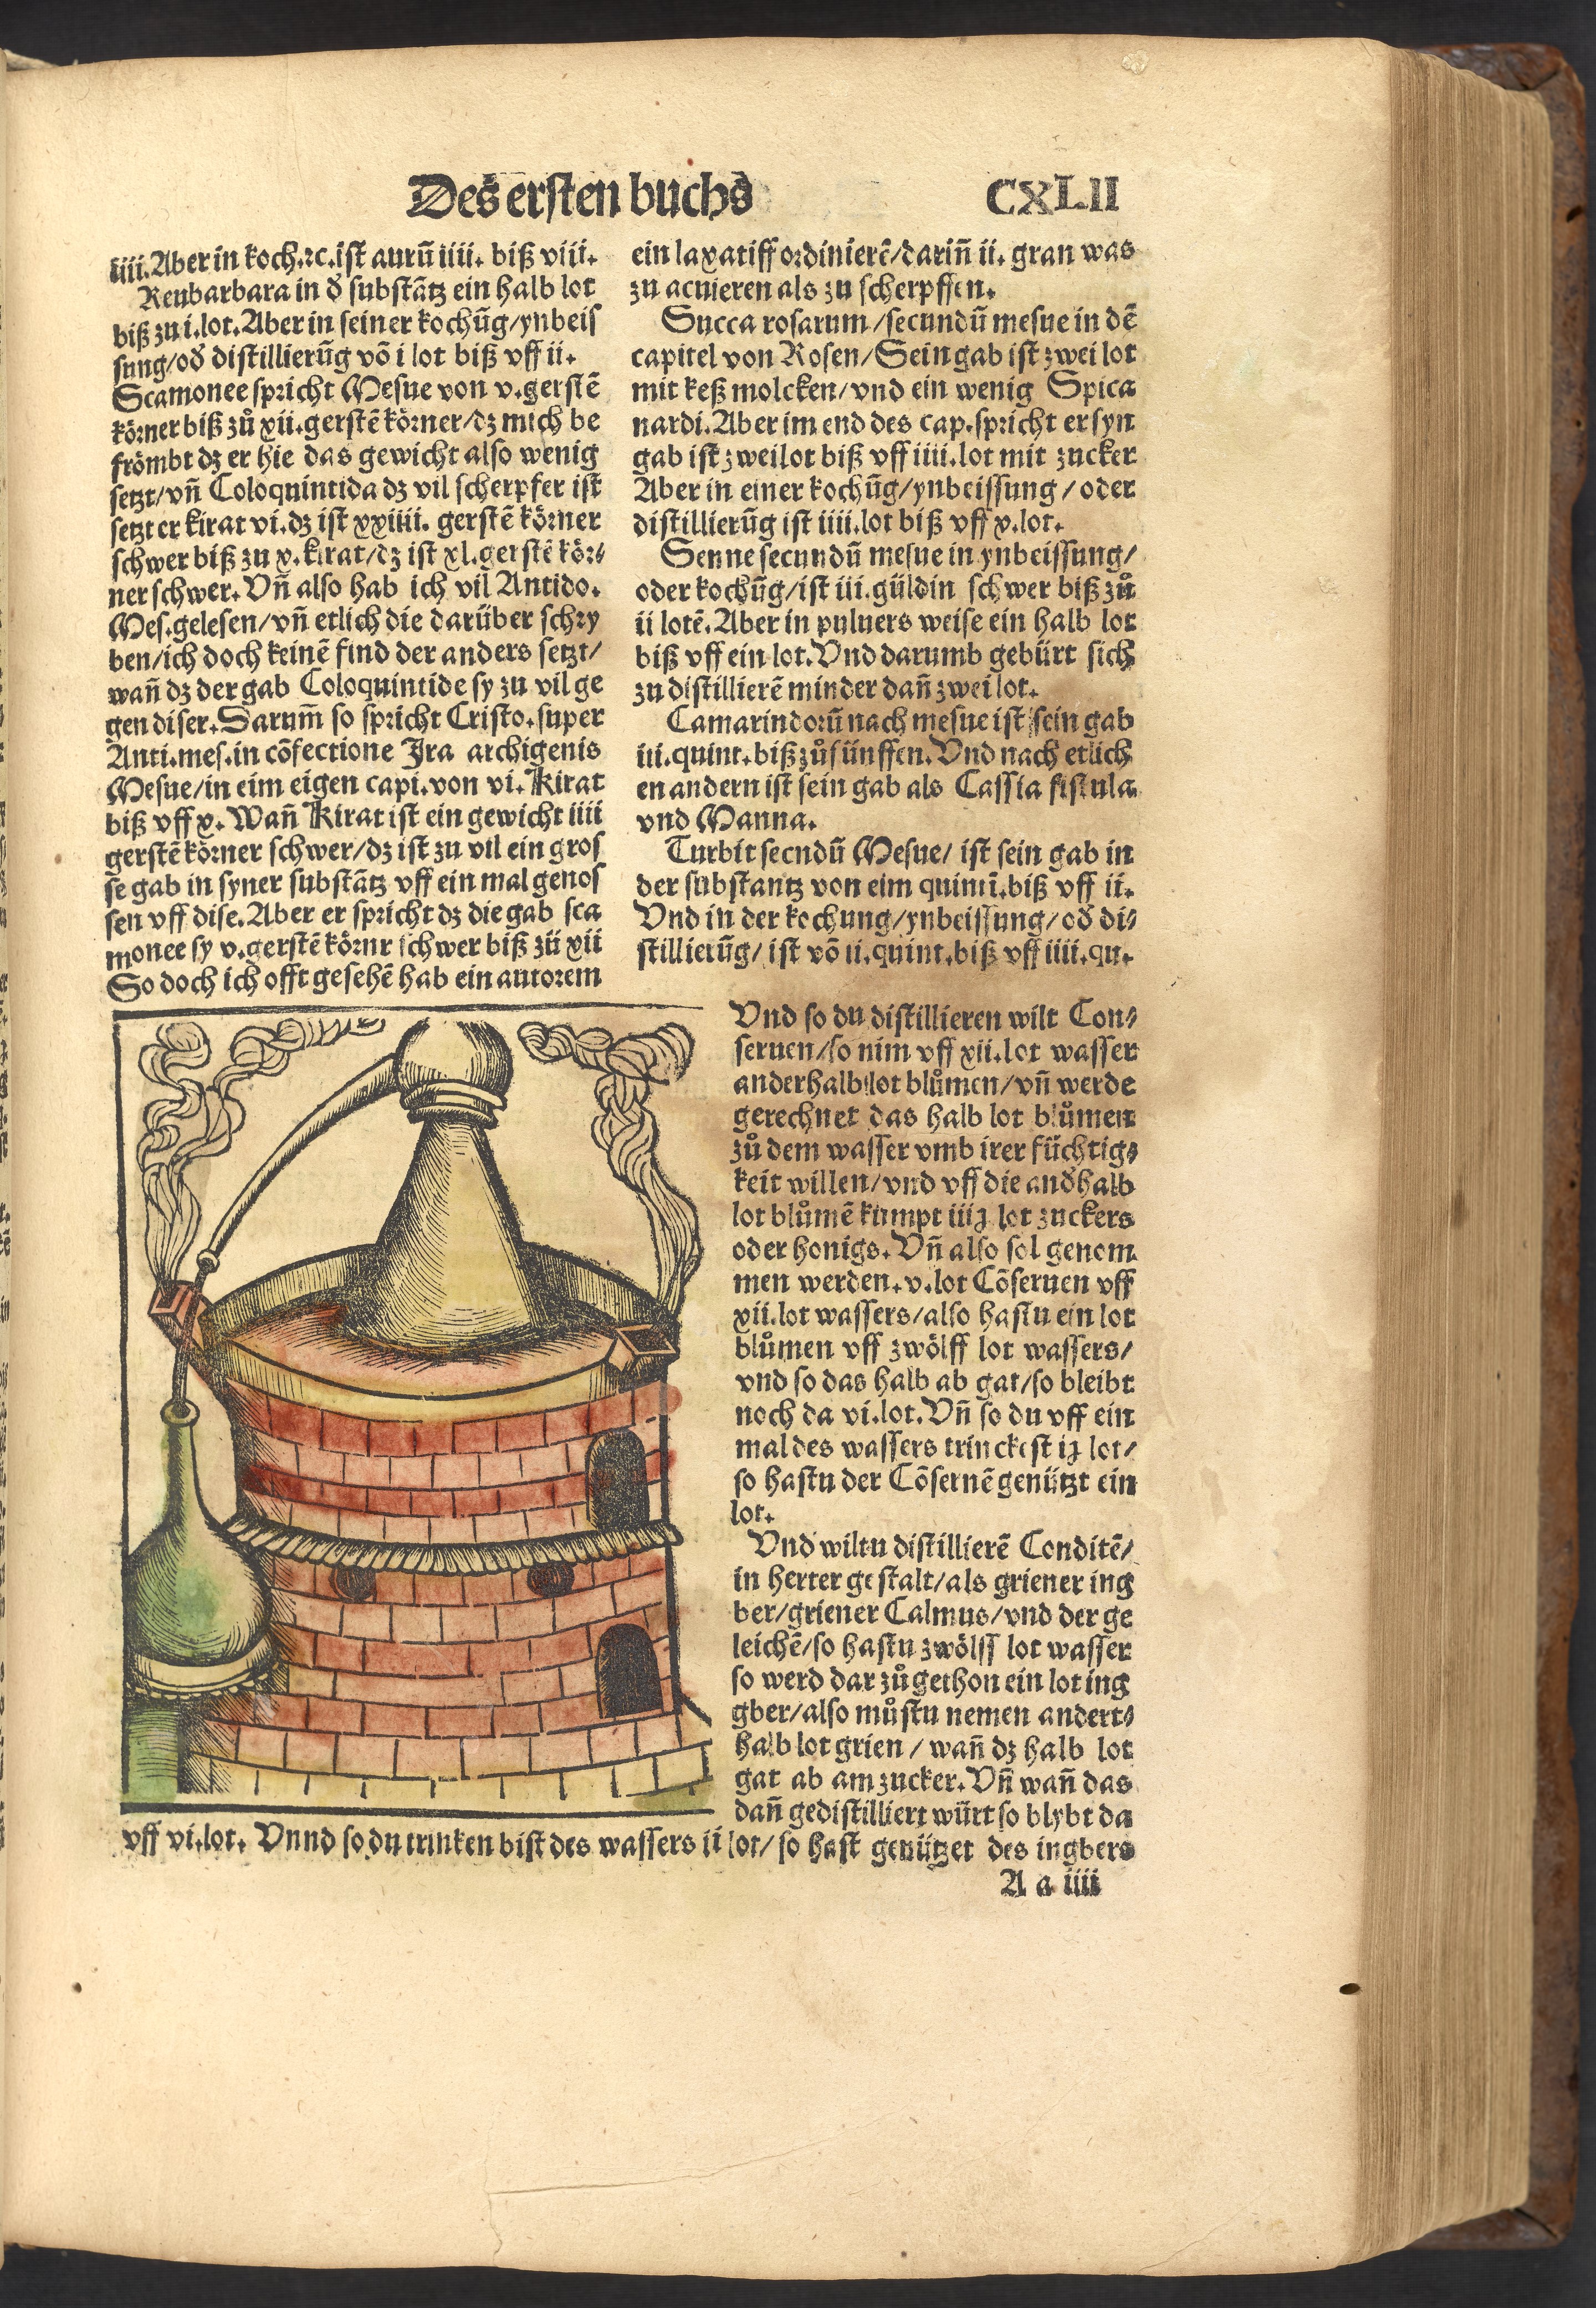 Des ersten buchs
CXLII
iiii. Aber in koch.ꝛc. ist aurū iiii. biß viii.
Reubarbara in d̕ substātz ein halb lot
biß zu i. lot. Aber in seiner kochūg/ynbeis
sung/od̕ distillierūg vō i lot biß vff ii.
Scamonee spricht Mesue von v. gerstē
körner biß zů xii. gerstē körner/dz mich be
frömbt dz er hie das gewicht also wenig
setzt/vn̄ Coloquintida dz vil scherpfer ist
setzt er kirat vi. dz ist xxiiii. gerstē körner
schwer biß zu x. kirat/dz ist xl. gerstē kör⸗
ner schwer. Vn̄ also hab ich vil Antido.
Mes. gelesen/vn̄ etlich die darüber schry
ben/ich doch keinē find der anders setzt/
wan̄ dz der gab Coloquintide sy zu vil ge
gen diser. Darum̄ so spricht Cristo. super
Anti. mes. in cōfectione Jra archigenis
Mesue/in eim eigen capi. von vi. Kirat
biß vff x. Wan̄ Kirat ist ein gewicht iiii
gerstē körner schwer/dz ist zu vil ein gros
se gab in syner substātz vff ein mal genos
sen vff dise. Aber er spricht dz die gab sca
monee sy v. gerstē körnr schwer biß zü xii
So doch ich offt gesehē hab ein autorem
ein laxatiff ordinierē/darin̄ ii. gran was
zu acuieren als zu scherpffen.
Succa rosarum/secundū mesue in dē
capitel von Rosen/Sein gab ist zwei lot
mit keß molcken/vnd ein wenig Spica
nardi. Aber im end des cap. spricht er syn
gab ist zwei lot biß vff iiii. lot mit zucker
Aber in einer kochūg/ynbeissung/oder
distillierūg ist iiii. lot biß vff x. lot.
Senne secundū mesue in ynbeissung/
oder kochūg/ist iii. güldin schwer biß zů
ii lotē. Aber in puluers weise ein halb lot
biß vff ein lot. Vnd darumb gebürt sich
zu distillierē minder dan̄ zwei lot.
Tamarindorū nach mesue ist sein gab
iii. quint. biß zů fünffen. Vnd nach etlich
en andern ist sein gab als Cassia fistula
vnd Manna.
Turbit secndū Mesue/ ist sein gab in
der substantz von eim quintī. biß vff ii.
Vnd in der kochung/ynbeissung/od̕ di⸗
stillierūg/ ist vō ii. quint. biß vff iiii. qu.
Vnd so du distillieren wilt Con⸗
seruen/so nim vff xii. lot wasser
anderhalb lot blůmen/vn̄ werde
gerechnet das halb lot blůmen
zů dem wasser vmb irer füchtig⸗
keit willen/vnd vff die and̕halb
lot blůmē kumpt iiiȷ lot zuckers
oder honigs. Vn̄ also sol genom
men werden. v. lot Cōseruen vff
xii. lot wassers/also hastu ein lot
blůmen vff zwölff lot wassers/
vnd so das halb ab gat/so bleibt
noch da vi. lot. Vn̄ so du vff ein
mal des wassers trinckest iȷ lot/
so hastu der Cōseruē genützt ein
lot.
Vnd wiltu distillierē Conditē/
in herter gestalt/als griener ing
ber/griener Calmus/vnd der ge
leichē/so hastu zwölff lot wasser
so werd dar zů gethon ein lot ing
gber/also můstu nemen andert⸗
halb lot grien/ wan̄ dz halb lot
gat ab am zucker. Vn̄ wan̄ das
dan̄ gedistilliert würt so blybt da
vff vi. lot. Vnnd so du trinken bist des wassers ii lot/ so hast genützet des ingbers
A a iiii